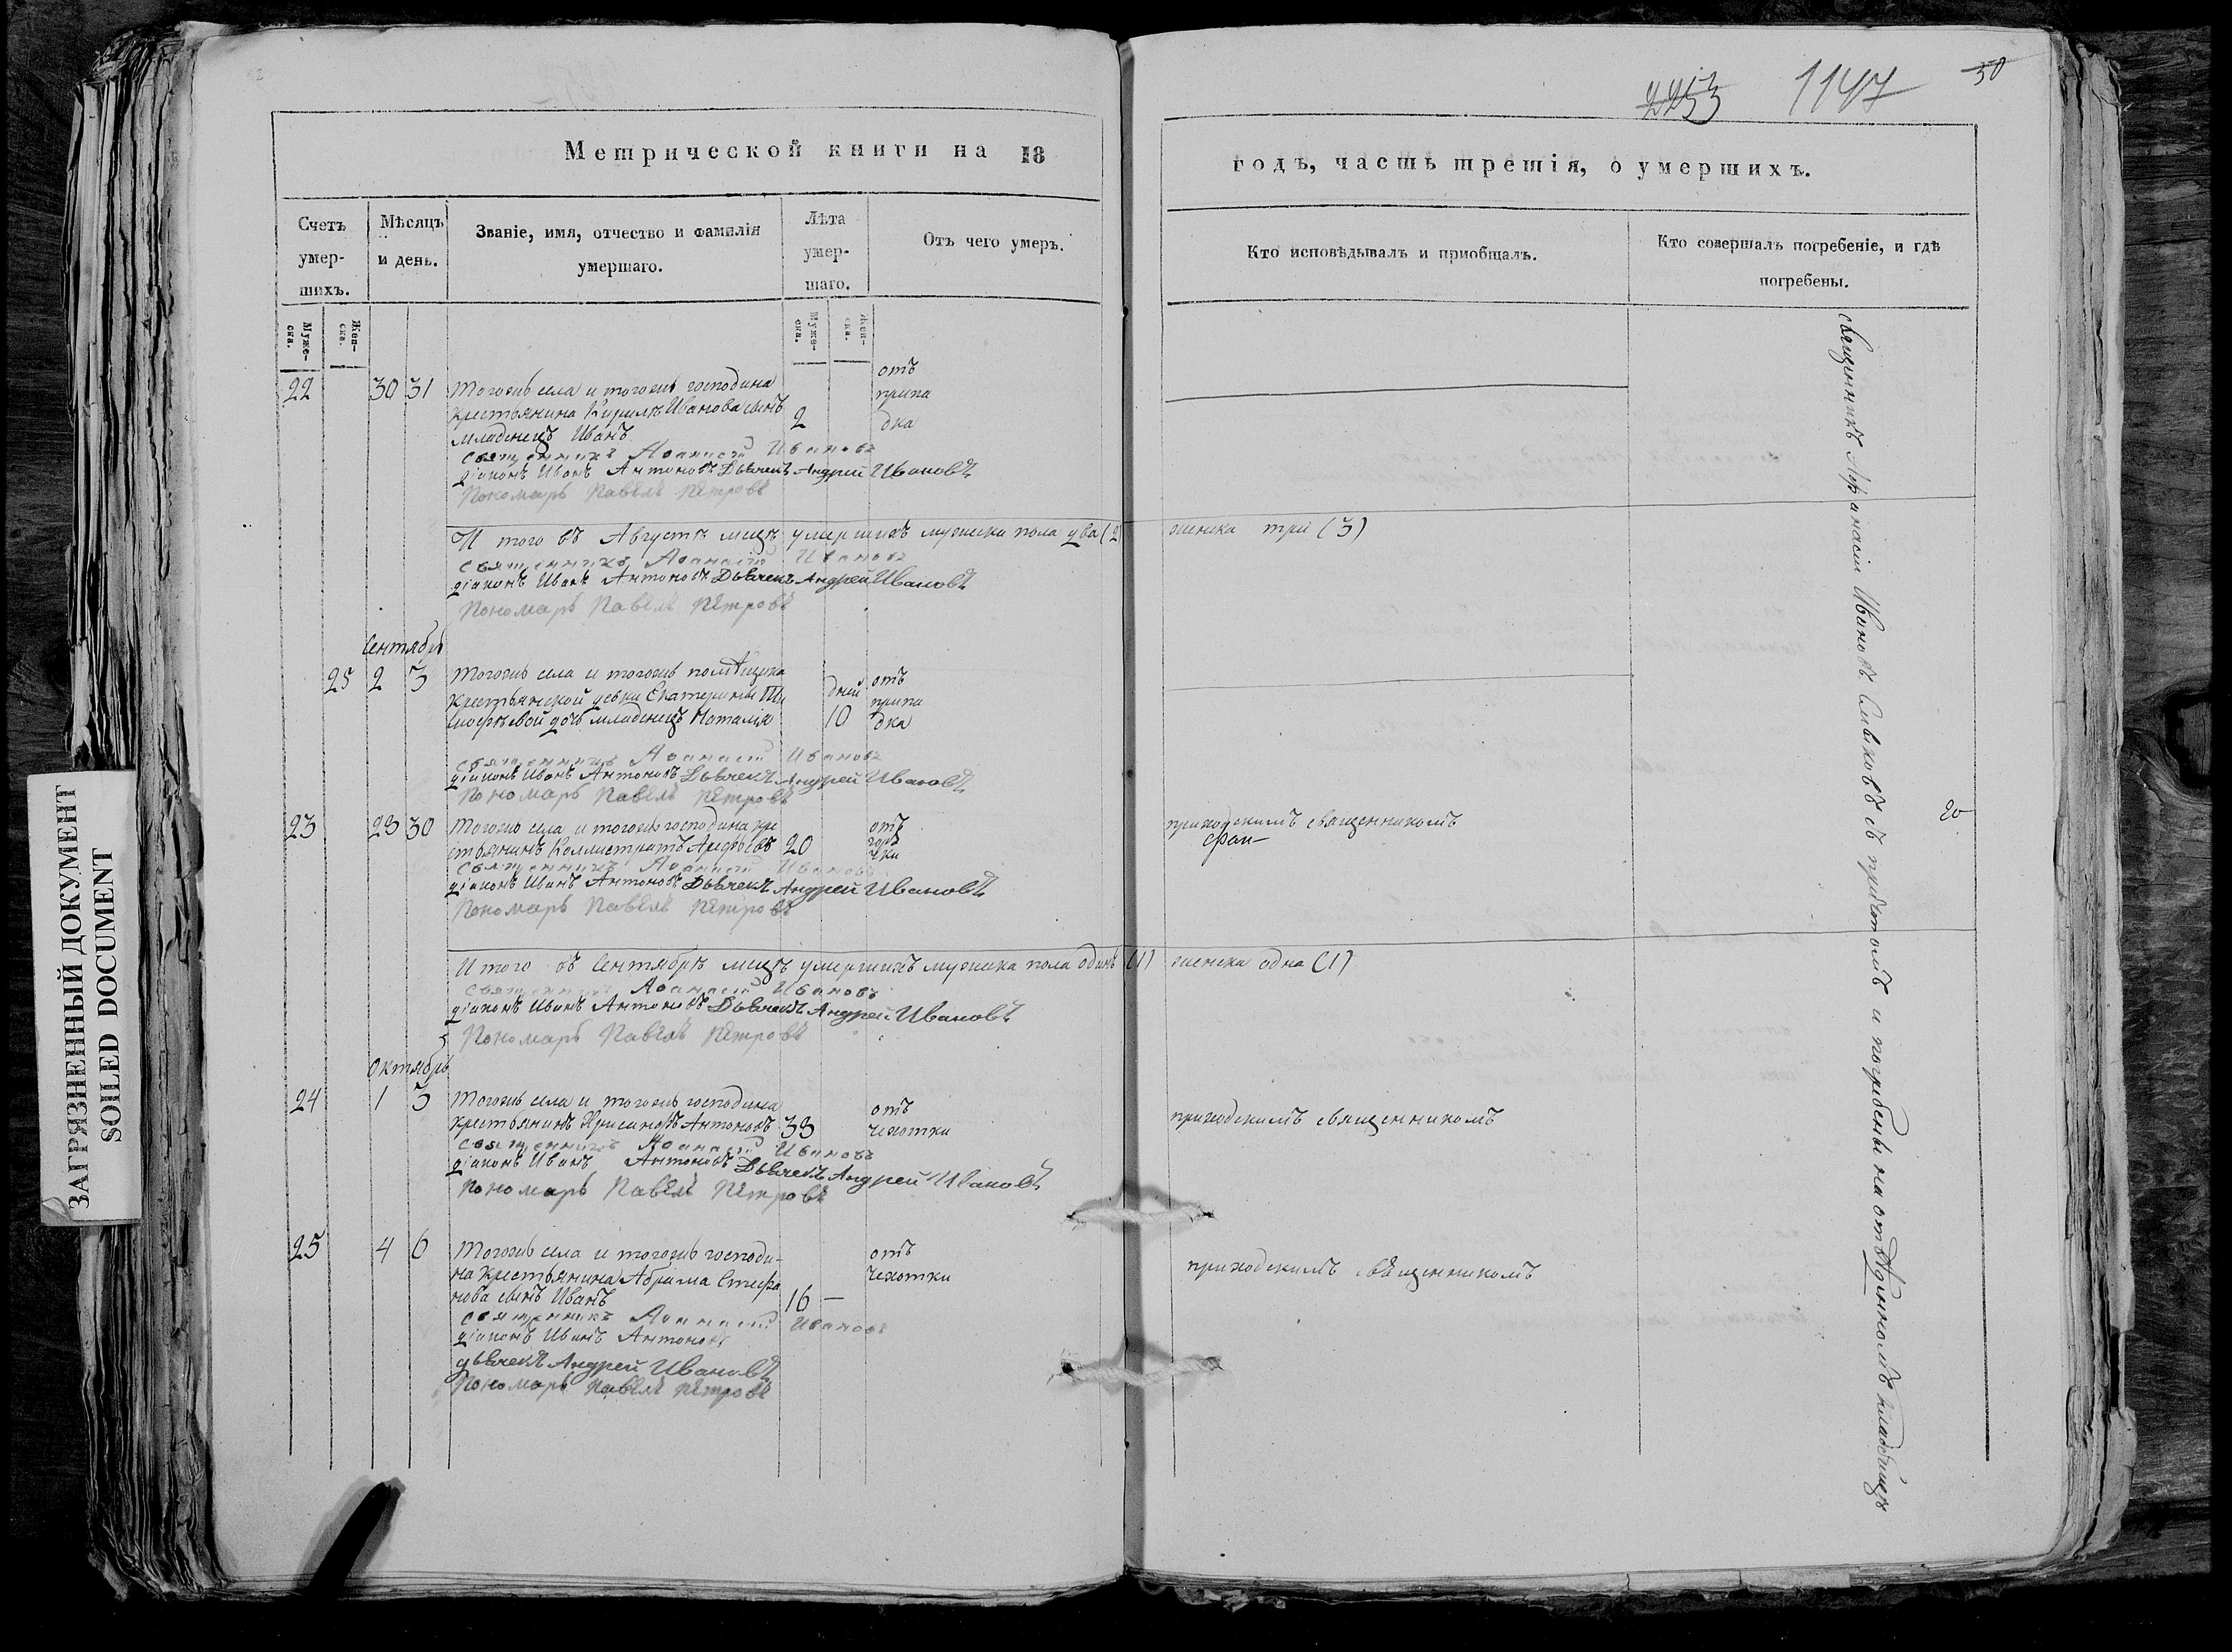 2253 1147 50
Метрической книги на 18
годъ, часть третія, о умершихъ.
Счетъ умер-шихъ.
Мѣсяцъ и день.
Званіе, имя, отчество и фамилія умершаго.
Лѣта умер-шаго.
Отъ чего умеръ.
Кто исповѣдывалъ и пріобщалъ.
Кто совершалъ погребеніе, и гдѣ погребены.
Муже-ска.
Жен-ска.
Муже-ска.
Жен-ска.
отъ
22 30 31 Тогожъ села и тогожъ господина
припа
крестьянина Кирилы Иванова сынъ 2
дка
младенецъ Иванъ
священникъ Афанасій Ивановъ
діаконъ Иванъ Антоновъ Дьячекъ Андрей Ивановъ
Пономарь Павелъ Петровъ
И того въ Августѣ мцѣ умершихъ мужеска пола два (2) женска три (3)
священникъ Афанасій Ивановъ
діаконъ Иванъ Антоновъ Дьячекъ Андрей Ивановъ
Пономарь Павелъ Петровъ
Сентябрь
25 2 3 Тогожъ села и тогожъ помѣщика
отъ
крестьянской девки Екатерины Ти
дней
припа
мофѣевой дочь младенецъ Наталія 10 дка
священникъ Афанасій Ивановъ
діаконъ Иванъ Антоновъ Дьячекъ Андрей Ивановъ
Пономарь Павелъ Петровъ
23 28 30 Тогожъ села и тогожъ господина кре
отъ
приходскимъ священникомъ
стьянинъ Каллистратъ 20
горя
чки
священникъ Афанасій Ивановъ
діаконъ Иванъ Антоновъ Дьячекъ Андрей Ивановъ
Пономарь Павелъ Петровъ
И того въ Сентябрѣ мцѣ умершихъ мужеска пола одинъ (1) женска одна (1)
священникъ Афанасій Ивановъ
діаконъ Иванъ Антоновъ Дьячекъ Андрей Ивановъ
Пономарь Павелъ Петровъ
Октябрь
24 1 3 Тогожъ села и тогожъ господина
отъ
крестьянинъ Хрисанфъ Антоновъ 38 чехотки
приходскимъ священникомъ
священникъ Афанасій Ивановъ
діаконъ Иванъ Антоновъ Дьячекъ Андрей Ивановъ
Пономарь Павелъ Петровъ
25 4 6 Тогожъ села и тогожъ господи-
отъ
на крестьянина Абрама Стефа
чехотки
приходскимъ священникомъ
нова сынъ Иванъ 16 —
священникъ Афанасій Ивановъ
діаконъ Иванъ Антоновъ
дьячекъ Андрей Ивановъ
Пономарь Павелъ Петровъ
священникъ Афанасіи Ивановъ съ причтомъ и погребены на кладбищѣ
ЗАГРЯЗНЕННЫЙ ДОКУМЕНТ
SOILED DOCUMENT